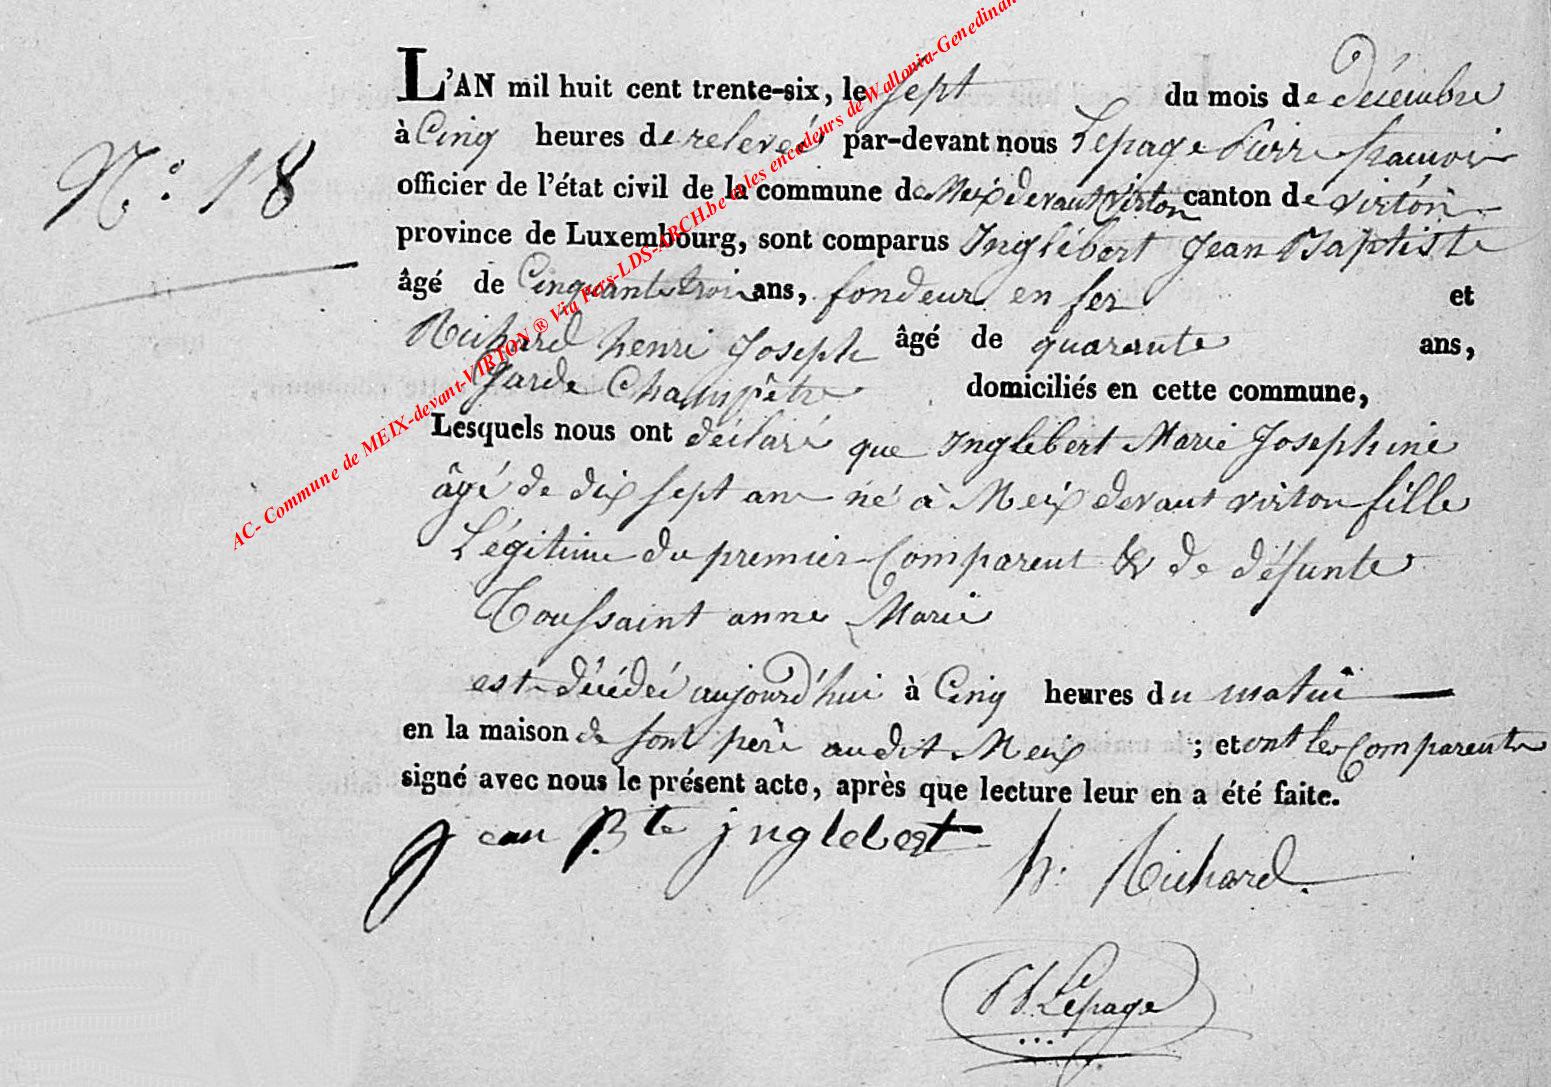 L'AN mil huit cent trente-six, le sept du mois de décembre
à Cinq heures de relevée par-devant nous Lepage Pierre françois
officier de l'état civil de la commune de Meix devant Virton canton de virton
province de Luxembourg, sont comparus Inglebert Jean Baptiste
âgé de Cinquante trois ans, fondeur en fer et
Richard henri Joseph âgé de quarante ans,
Garde Champêtre domiciliés en cette commune,
Lesquels nous ont déclaré que Inglebert Marie Josephine
âgé de dix sept ans né à Meix devant virton fille
Légitime du premier Comparent & de défunte
Toussaint anne Marie
est décédée aujourd'hui à Cinq heures du matin
en la maison de sont père audit Meix ; et ont les Comparents
signé avec nous le présent acte, après que lecture leur en a été faite.
N.° 18
jean Bte jnglebert
h. Richard.
Lepage
AC- Commune de MEIX-devant-VIRTON ® Via Pers-LDS-ARCH.be les encodeurs de Wallonia-Genedinan